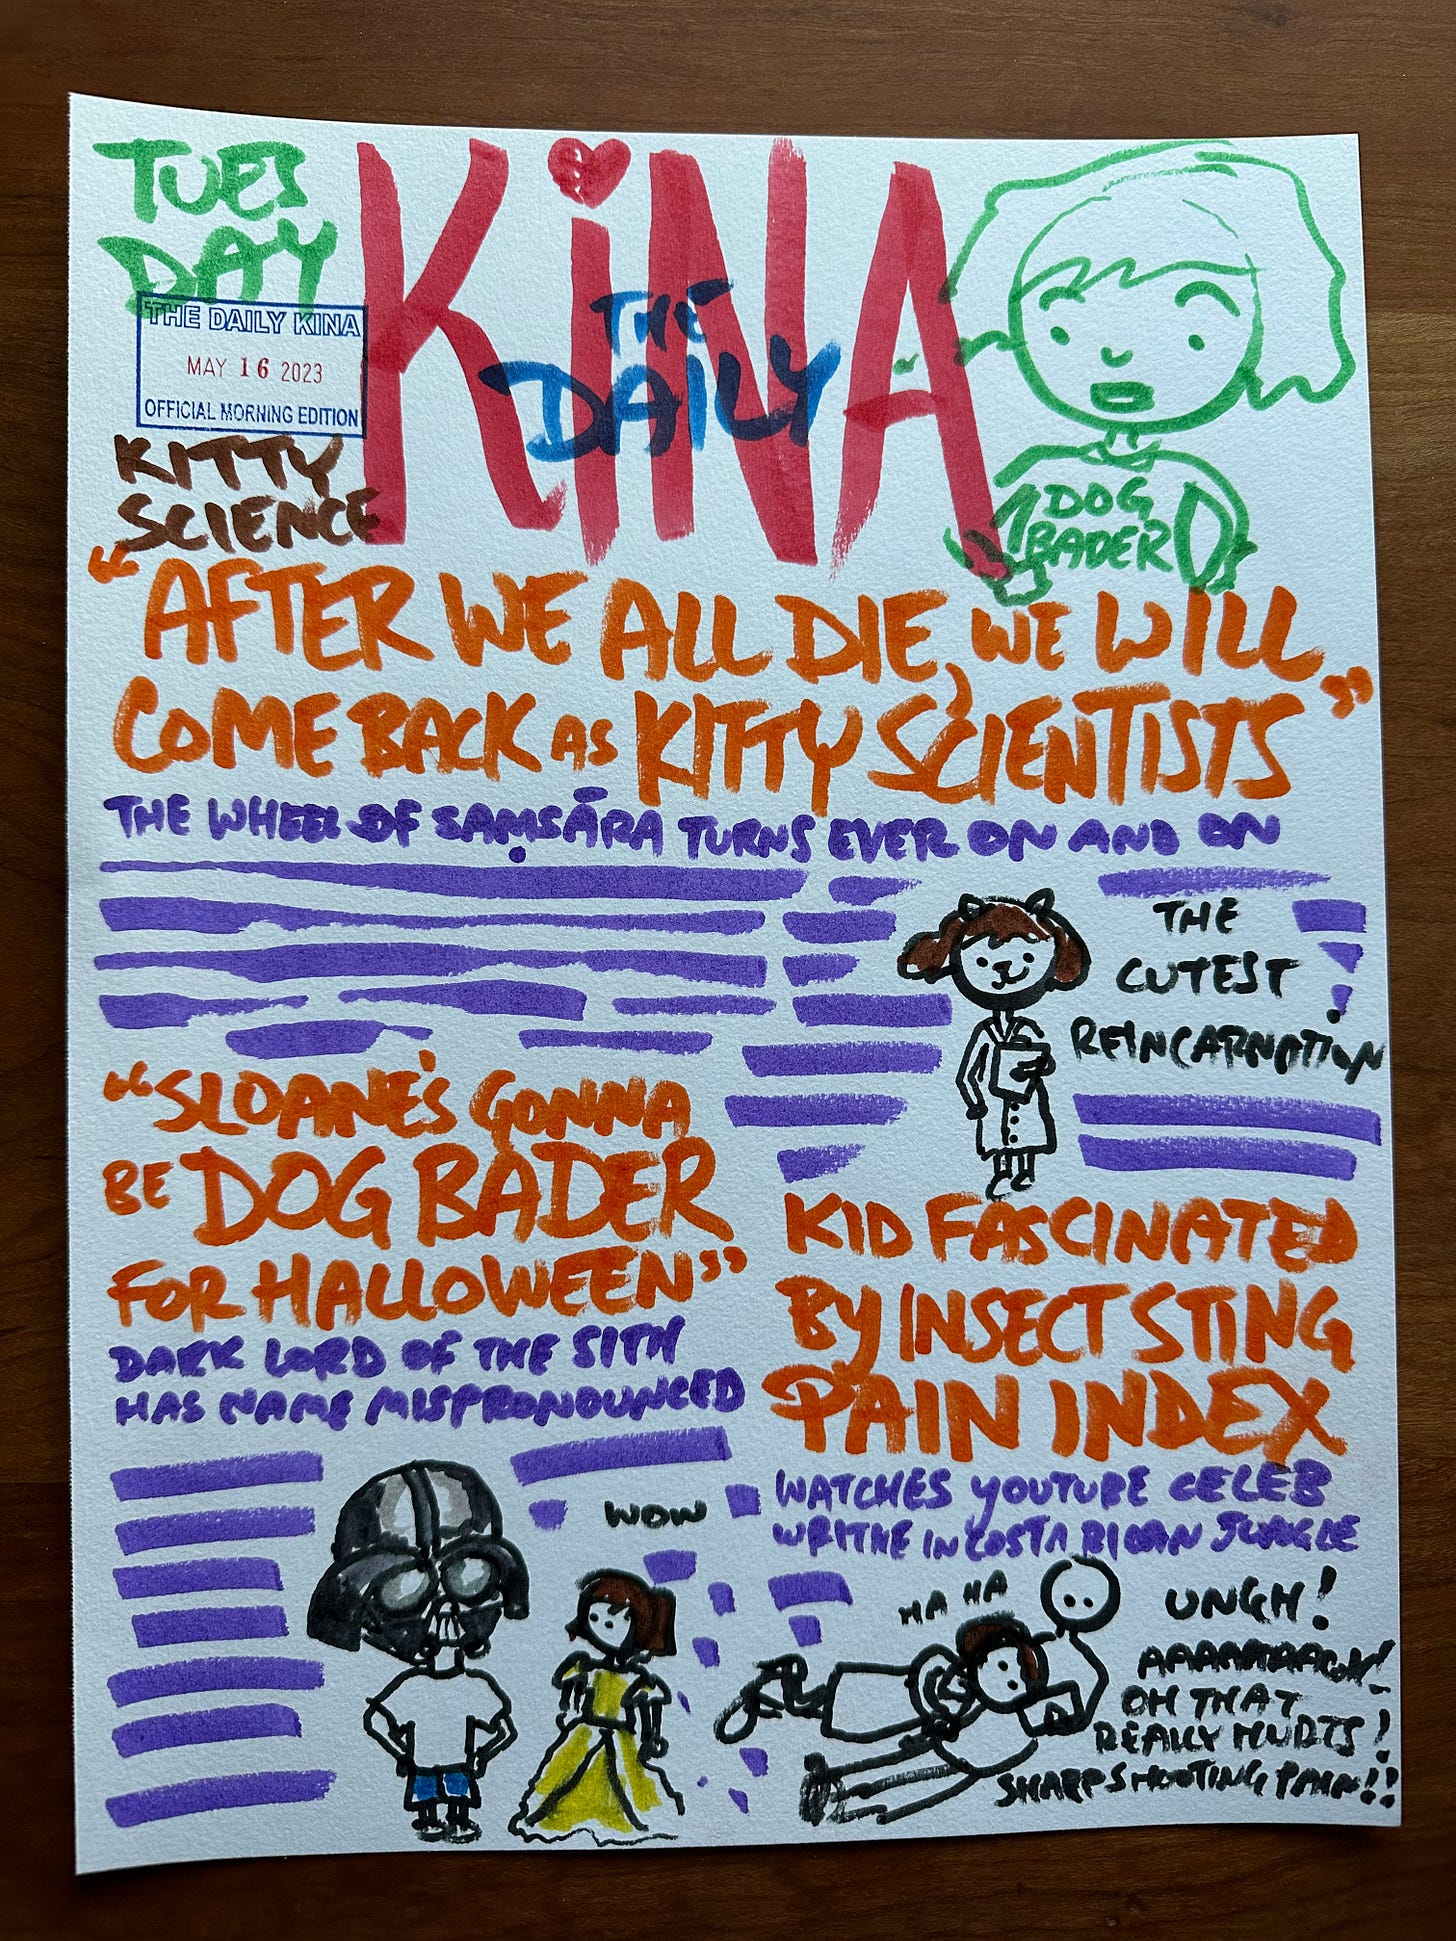 TUES
DAY
THE DAILY KINA
MAY 16 2023
OFFICIAL MORNING EDITION
KITTY
SCIENCE
KiNA
THE
DAILY
DOG
BADER
"AFTER WE ALL DIE, WE WILL
COME BACK AS KITTY SCIENTISTS"
THE WHEEL OF SAṂSĀRA TURNS EVER ON AND ON
THE
CUTEST
REINCARNATION
"SLOANE'S GONNA
BE DOG BADER
FOR HALLOWEEN"
DARK LORD OF THE SITH
HAS NAME MISPRONOUNCED
WOW
KID FASCINATED
BY INSECT STING
PAIN INDEX
WATCHES YOUTUBE CELEB
WRITHE IN COSTA RICAN JUNGLE
HA HA
UNGH!
AAAAAAAAGH!
OH THAT
REALLY HURTS!
SHARP SHOOTING PAIN!!